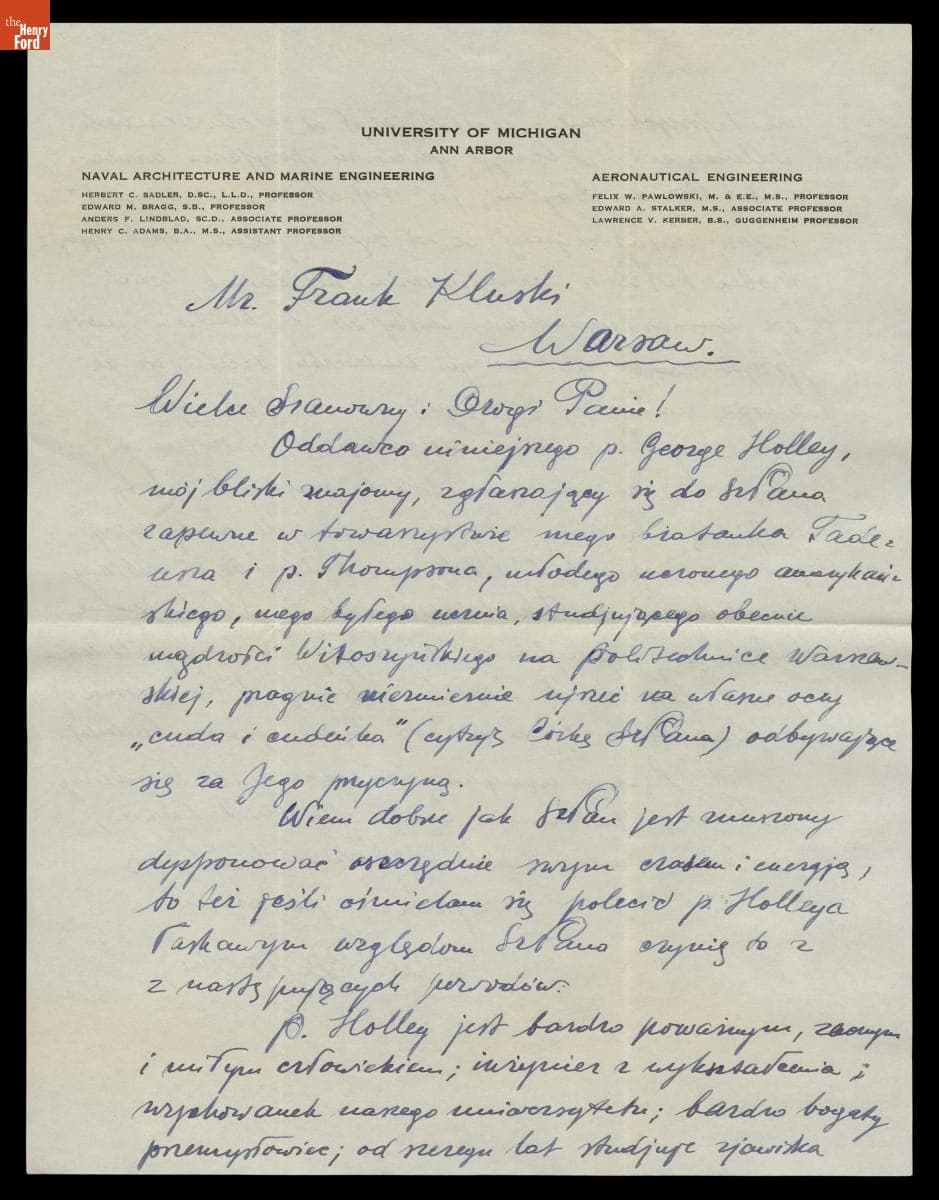 the
Henry
Ford
UNIVERSITY OF MICHIGAN
ANN ARBOR
NAVAL ARCHITECTURE AND MARINE ENGINEERING
HERBERT C. SADLER, D.SC., L.L.D., PROFESSOR
EDWARD M. BRAGG, S.B., PROFESSOR
ANDERS F. LINDBLAD, SC.D., ASSOCIATE PROFESSOR
HENRY C. ADAMS, B.A., M.S., ASSISTANT PROFESSOR
AERONAUTICAL ENGINEERING
FELIX W. PAWLOWSKI, M. & E.E., M.S., PROFESSOR
EDWARD A. STALKER, M.S., ASSOCIATE PROFESSOR
LAWRENCE V. KERBER, B.S., GUGGENHEIM PROFESSOR
Mr. Frank Kluski
Warsaw.
Wielce Szanowny i Drogi Panie!
Oddawca niniejszego p. George Holley,
mój bliski znajomy, zgłaszający się do SzPana
zapewne w towarzystwie mego bratanka Tade-
usza i p. Thompsona, młodego uczonego amerykań-
skiego, mego byłego ucznia, studjującego obecnie
mądrości Witoszyńskiego na politechnice Warszaw-
skiej, pragnie niezmiernie ujrzeć na własne oczy
„cuda i cudeńka" (cytuję Córkę SzPana) odbywające
się za Jego przyczyną.
Wiem dobrze jak SzPan jest zmuszony
dysponować oszczędnie swym czasem i energją,
to też jeśli ośmielam się polecić p. Holleya
łaskawym względom SzPana czynię to z
z następujących powodów:
p. Holley jest bardzo poważnym, zacnym
i miłym człowiekiem; inżynier z wykształcenia i
wychowanek naszego uniwersytetu; bardzo bogaty
przemysłowiec; od szeregu lat studjuje zjawiska